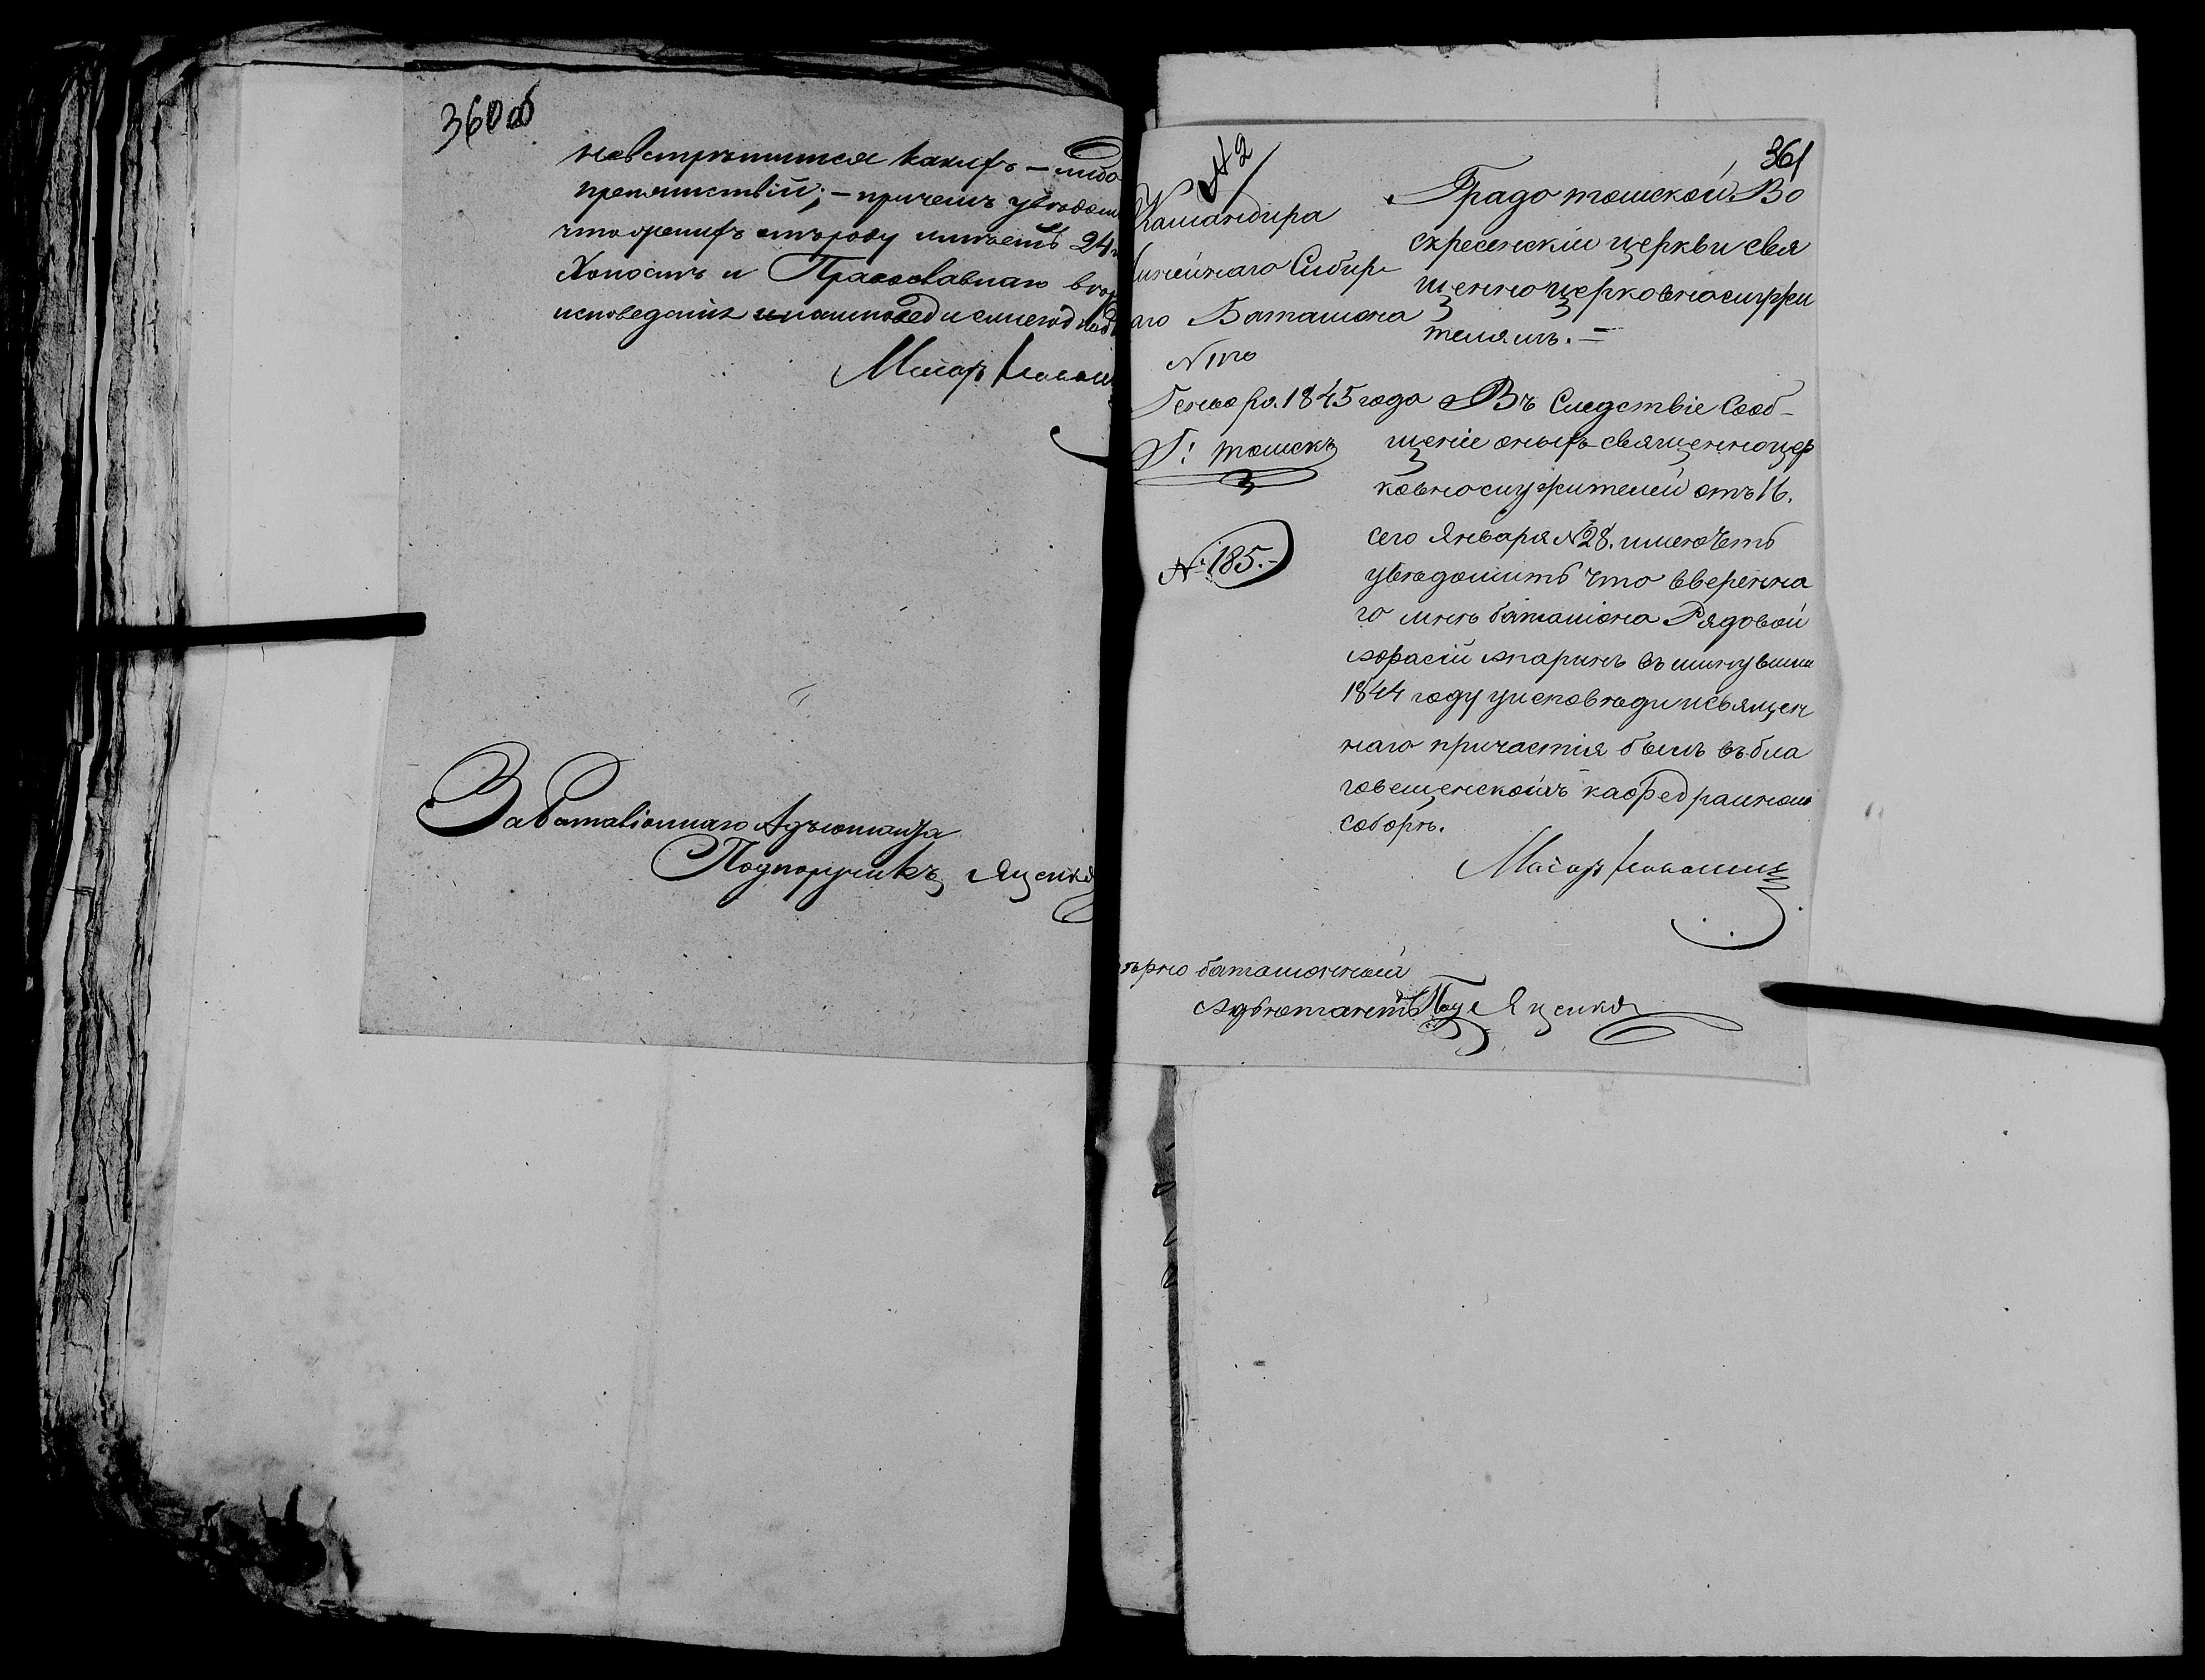 360 об
невстретится какихъ – либо
препятствій; – причемъ уведом
что женихъ отъ роду имѣетъ 24
Холостъ и Православнаго
исповеданія
Маіоръ
За Баталіоннаго Адъютанта
Подпоручикъ Яценко
361
№ 2
Командира
линейнаго Сибир
аго Баталиона
1845 года
Г: Томскъ
№ 185.–
Градо томской Во
скресенскіи церкви свя
щенноцерковнослужи
телямъ. –
Въ Следствіе Сооб–
щеніе оныхъ священноцер
ковнослужителей отъ 16.
сего Января № 28. имею честь
уведомить что вверенна
го мне баталиона Рядовой
въ минувшим
1844 году у исповеди и священ
наго причастія былъ въ бла
говещенскомъ кафедральном
соборе.
Маіоръ
баталионный
Адъютантъ Яценко